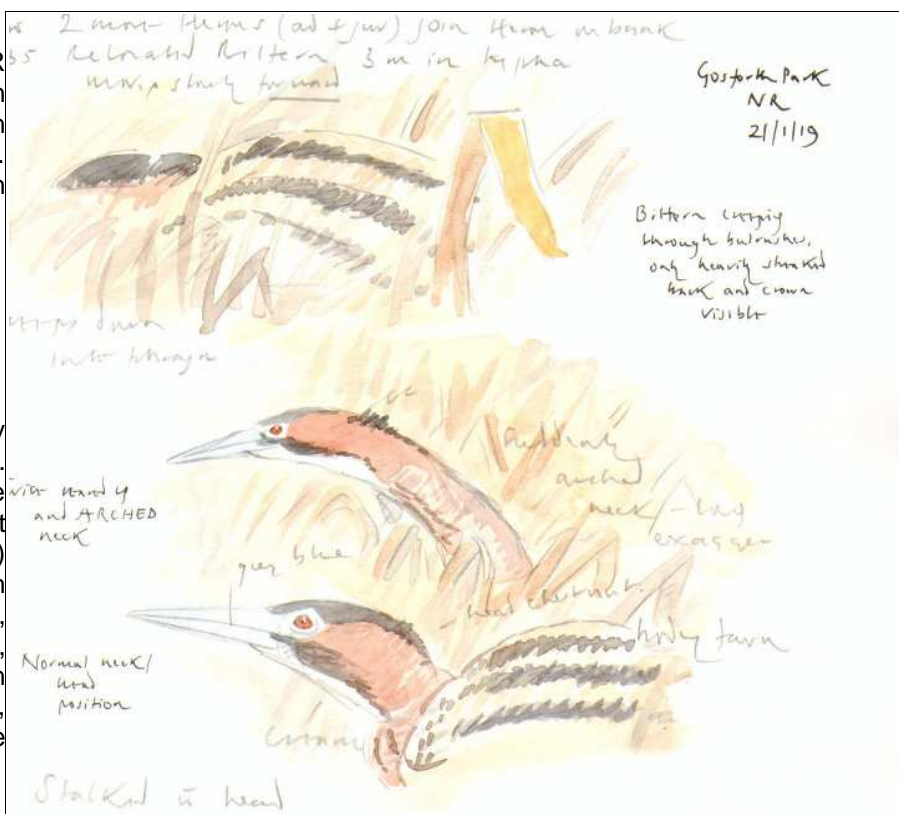 2 more Herons (ad & juv) join Heron on bank
Relocated Bittern 3 m in typha
moving slowly forward
Gosforth Park
NR
21/1/19
Bittern creeping
through bulrushes,
only heavily streaked
back and crown
visible
down
into phrag
Suddenly
arched
neck/-long
and ARCHED
neck
grey blue
head chestnut
body fawn
Normal neck/
head
position
Stalked
head